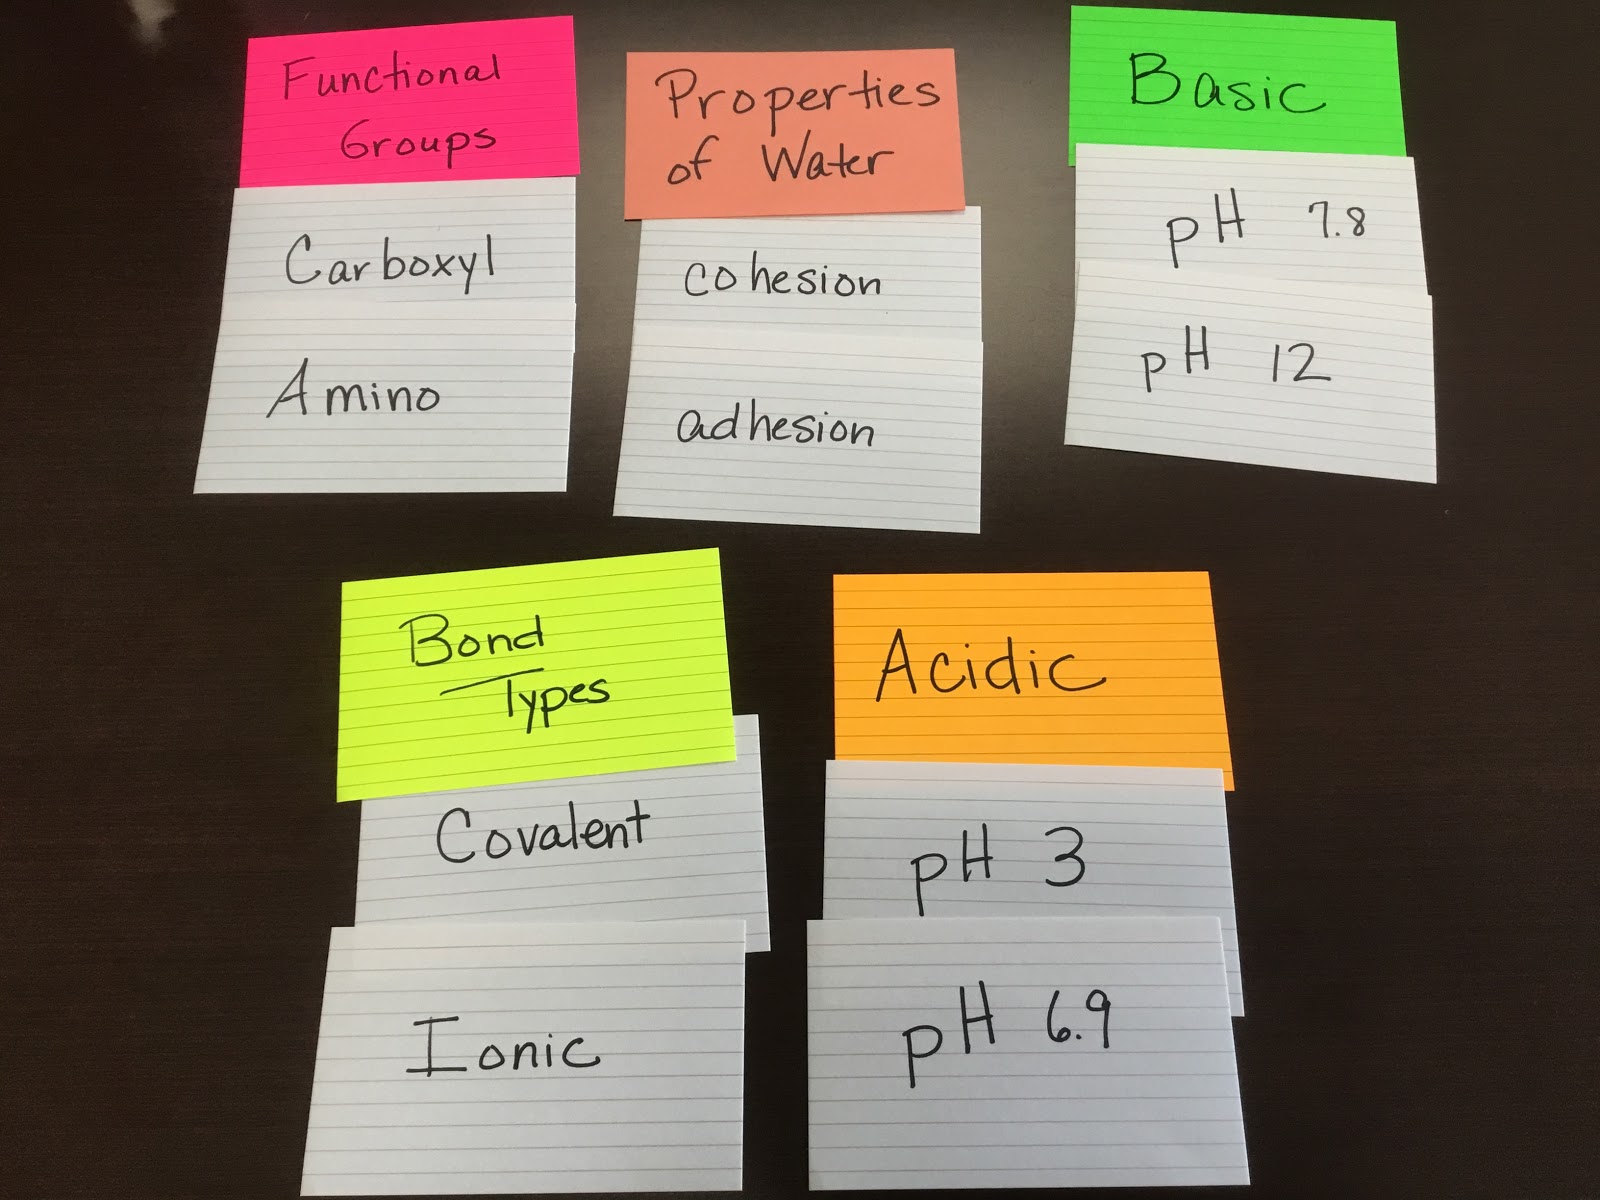 Functional
Groups
Carboxyl
Amino
Properties
of Water
cohesion
adhesion
Basic
pH 7.8
pH 12
Bond
Types
Covalent
Ionic
Acidic
pH 3
pH 6.9